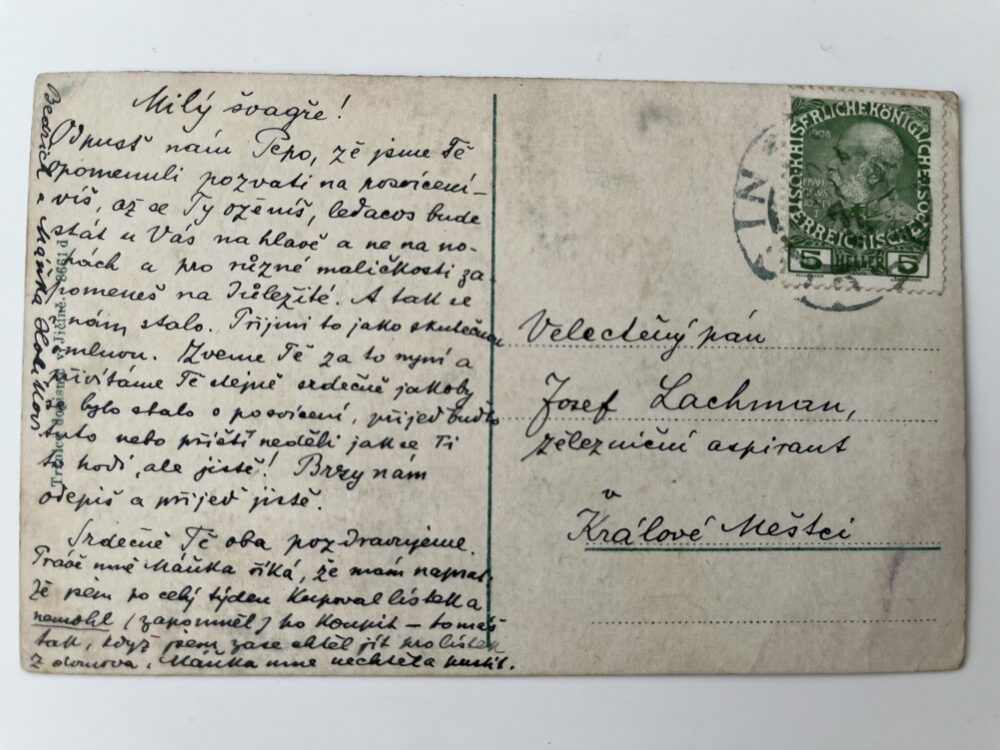 Milý švagře!
Odpusť nám Pepo, že jsme Tě
opomenuli pozvati na posvícení –
víš, až se Ty oženíš, ledacos bude
stát u Vás na hlavě a ne na no-
hách a pro různé maličkosti za
pomeneš na důležité. A tak se
nám stalo. Přijmi to jako skutečnou
omluvu. Zveme Tě za to nyní a
přivítáme Tě stejně srdečně jakoby
se bylo stalo o posvícení, přijeď buďto
tuto nebo příští neděli jak se Ti
to hodí, ale jistě! Brzy nám
odepiš a přijeď jistě.
Srdečně Tě oba pozdravujeme.
Právě mně Mánka říká, že mám napsat
že jsem po celý týden kupoval lístek a
nemohl (zapomněl) ho koupit – to máš
tak, když jsem zase chtěl jít pro lístek
z domova, Mánka mne nechtěla pustit.
Bedřich a Mánka
Tržnice v Jičíně. 8661 d
KAISERLICHE KÖNIGLICHE
ÖSTERREICHISCHE
1908
5 HELLER 5
Velectěný pán
Josef Lachman,
železniční aspirant
v
Králové Městci